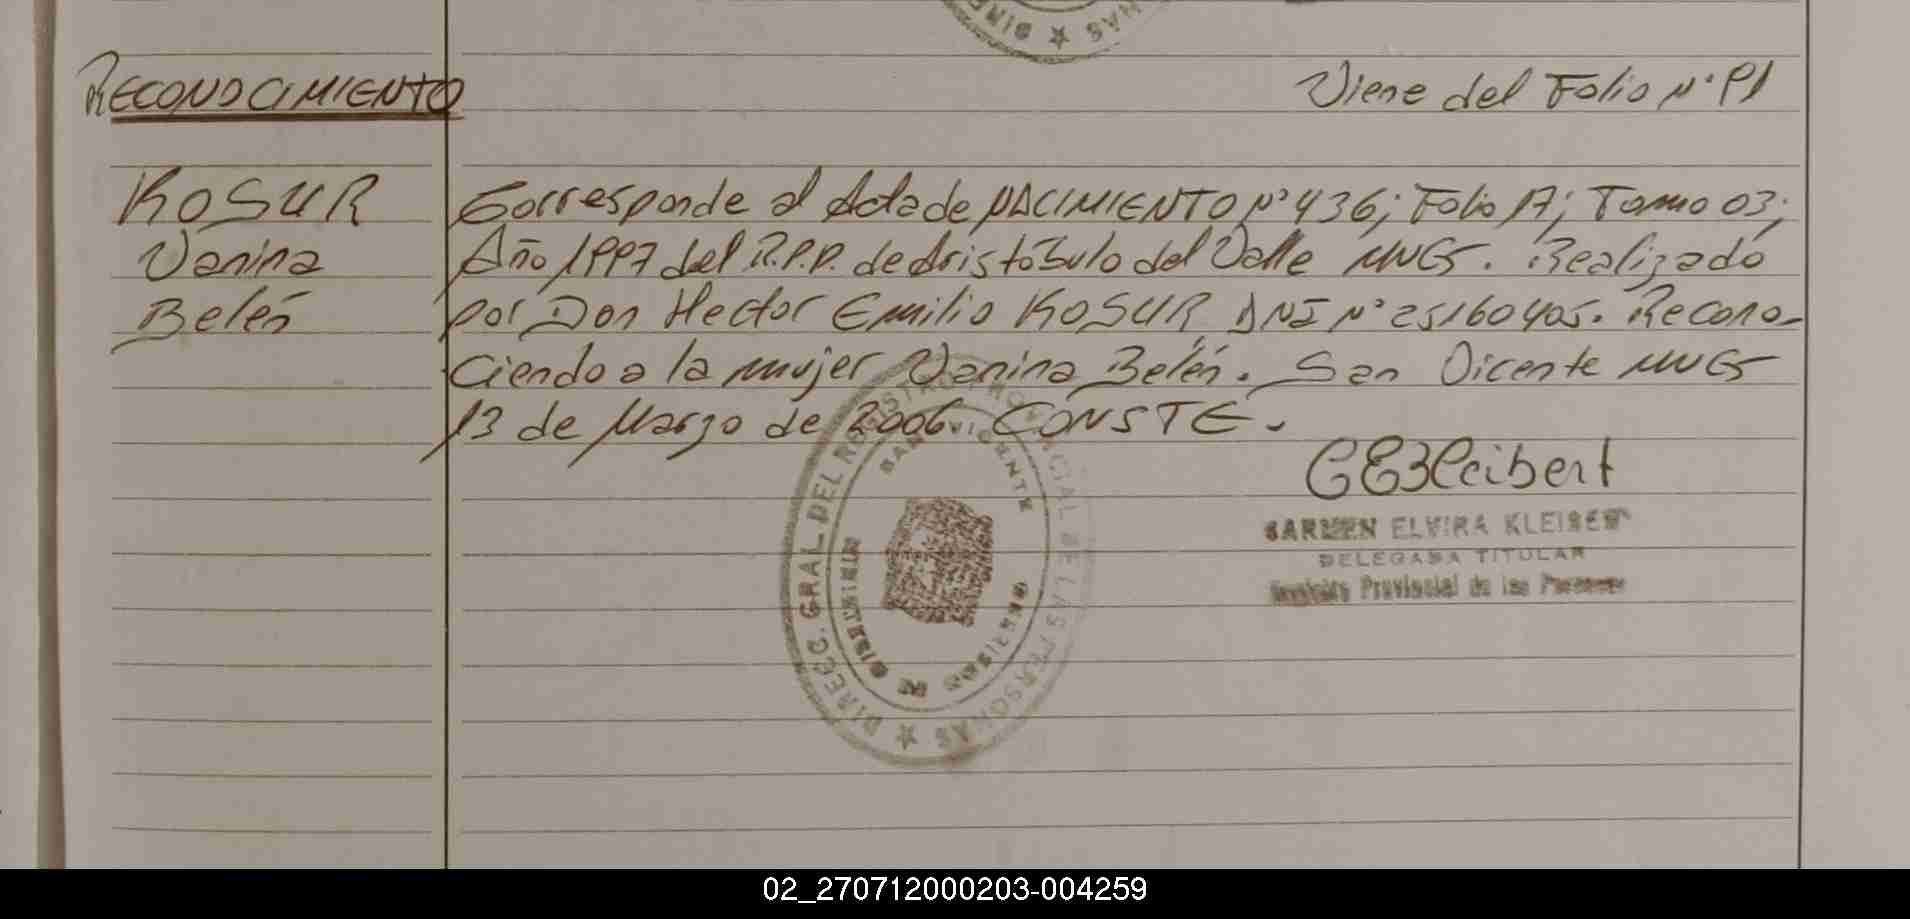 RECONOCIMIENTO
Viene del Folio Nº 91
KOSUR
Vanina
Belén
Corresponde al Acta de NACIMIENTO Nº 436; Folio 17; Tomo 03;
Año 1997 del R.P.P. de Aristóbulo del Valle MNES. Realizado
por Don Hector Emilio KOSUR DNI Nº 25160405. Recono-
ciendo a la mujer Vanina Belén. San Vicente MNES
13 de Marzo de 2006 CONSTE.
CARMEN ELVIRA KLEIBERT
DELEGADA TITULAR
Registro Provincial de las Personas
DIRECC. GRAL. DEL REGISTRO PROVINCIAL DE LAS PERSONAS
SAN VICENTE
MISIONES
02_270712000203-004259